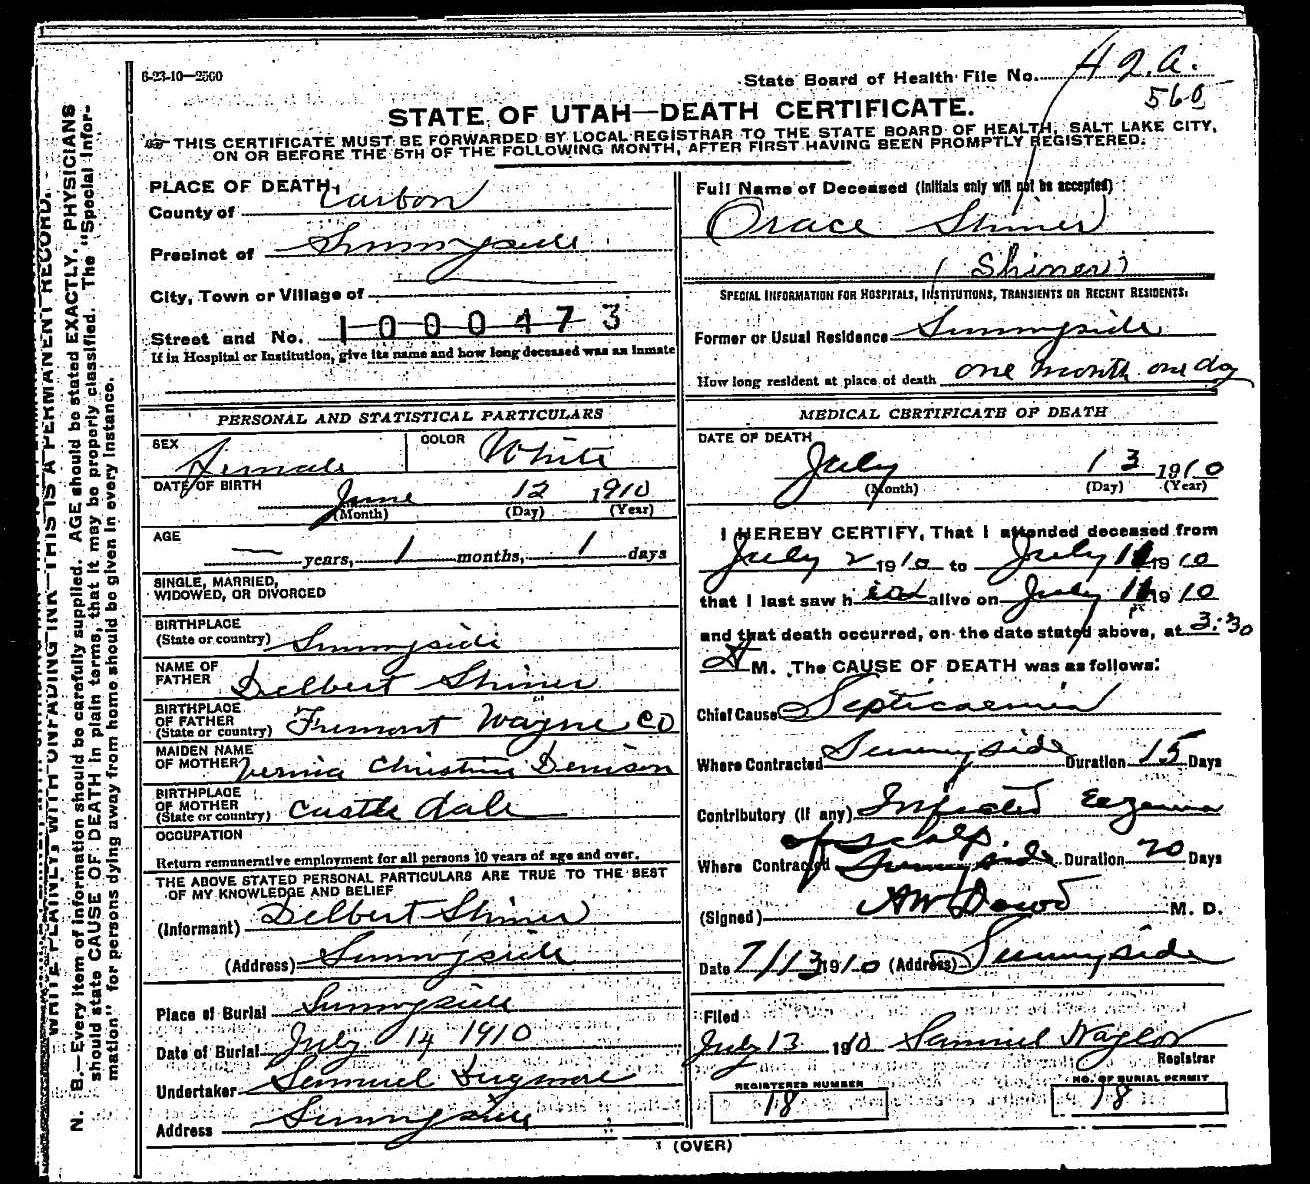 6-23-10—2500
State Board of Health File No. 42.a.
560
STATE OF UTAH—DEATH CERTIFICATE.
THIS CERTIFICATE MUST BE FORWARDED BY LOCAL REGISTRAR TO THE STATE BOARD OF HEALTH, SALT LAKE CITY,
ON OR BEFORE THE 5TH OF THE FOLLOWING MONTH, AFTER FIRST HAVING BEEN PROMPTLY REGISTERED.
PLACE OF DEATH,
County of Carbon
Precinct of Sunnyside
City, Town or Village of
Street and No. 1000473
If in Hospital or Institution, give its name and how long deceased was an Inmate
Full Name of Deceased (Initials only will not be accepted)
Orace Shiner
(Shiner)
SPECIAL INFORMATION FOR HOSPITALS, INSTITUTIONS, TRANSIENTS OR RECENT RESIDENTS:
Former or Usual Residence Sunnyside
How long resident at place of death one month one day
PERSONAL AND STATISTICAL PARTICULARS
SEX Female COLOR White
DATE OF BIRTH June 12 1910
(Month) (Day) (Year)
AGE — years, 1 months, 1 days
SINGLE, MARRIED,
WIDOWED, OR DIVORCED
BIRTHPLACE
(State or country) Sunnyside
NAME OF
FATHER Delbert Shiner
BIRTHPLACE
OF FATHER
(State or country) Fremont Wayne CO
MAIDEN NAME
OF MOTHER Vernia Christina Denison
BIRTHPLACE
OF MOTHER
(State or country) Castle dale
OCCUPATION
Return remunerative employment for all persons 10 years of age and over.
THE ABOVE STATED PERSONAL PARTICULARS ARE TRUE TO THE BEST
OF MY KNOWLEDGE AND BELIEF
(Informant) Delbert Shiner
(Address) Sunnyside
Place of Burial Sunnyside
Date of Burial July 14 1910
Undertaker Samuel Dugmore
Address Sunnyside
MEDICAL CERTIFICATE OF DEATH
DATE OF DEATH
July 13 1910
(Month) (Day) (Year)
I HEREBY CERTIFY, That I attended deceased from
July 2 1910 to July 11 1910
that I last saw h alive on July 11 1910
and that death occurred, on the date stated above, at 3:30
M. The CAUSE OF DEATH was as follows:
Chief Cause Septicaemia
Where Contracted Sunnyside Duration 15 Days
Contributory (if any) Infected Eczema
of scalp
Where Contracted Sunnyside Duration 20 Days
(Signed) AW Dowd M. D.
Date 7/13 1910 (Address) Sunnyside
Filed
July 13 1910 Samuel Naylor
Registrar
REGISTERED NUMBER
18
NO. OF BURIAL PERMIT
18
(OVER)
WRITE PLAINLY, WITH UNFADING INK—THIS IS A PERMANENT RECORD.
N. B.—Every item of information should be carefully supplied. AGE should be stated EXACTLY. PHYSICIANS
should state CAUSE OF DEATH in plain terms, that it may be properly classified. The "Special Infor-
mation" for persons dying away from home should be given in every instance.